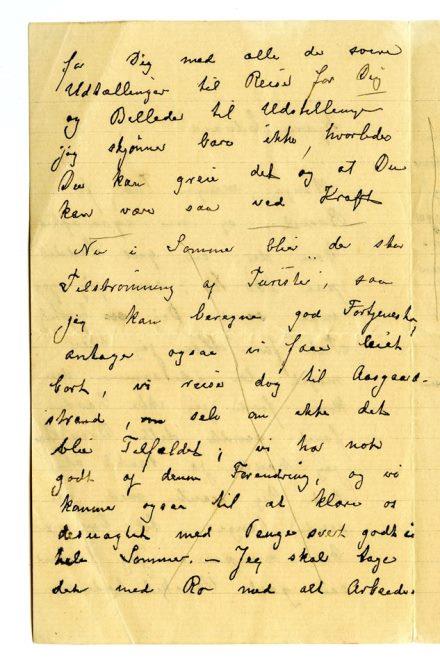 for Dig med alle de svære
Udtællinger til Reise for Dig
og Billeder til Udstillinger
jeg skjønner bare ikke, hvorledes
Du kan greie det og at Du
kan være saa ved Kraft
Nu i Sommer blir der stor
Tilstrømning af Turister, saa
jeg kan beregne god Fortjeneste,
antager ogsaa vi faar leiet
bort, vi reise dog til Aasgaard-
strand, selv om ikke det
blir Tilfældet; vi har nok
godt af denne Forandring, og vi
kommer ogsaa til at klare os
desuagtet med Penge svert godt i
hele Sommer. – Jeg skal tage
det med Ro med alt Arbeide.